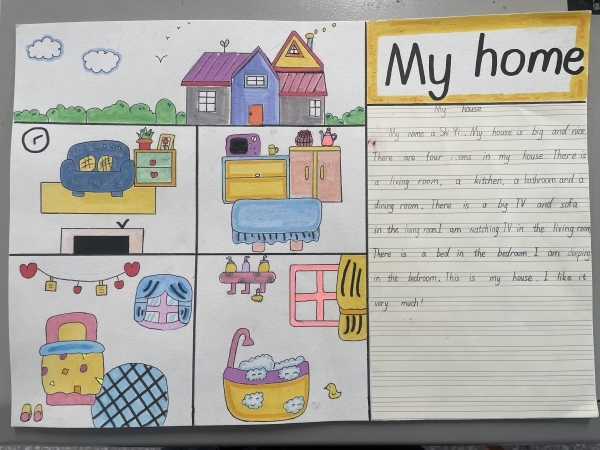 My home
My house
My name is Shi Yi. My house is big and nice.
There are four rooms in my house. There is
a living room, a kitchen, a bathroom and a
dining room. There is a big TV and sofa
in the living room. I am watching TV in the living room
There is a bed in the bedroom. I am sleeping
in the bedroom. This is my house. I like it
very much!